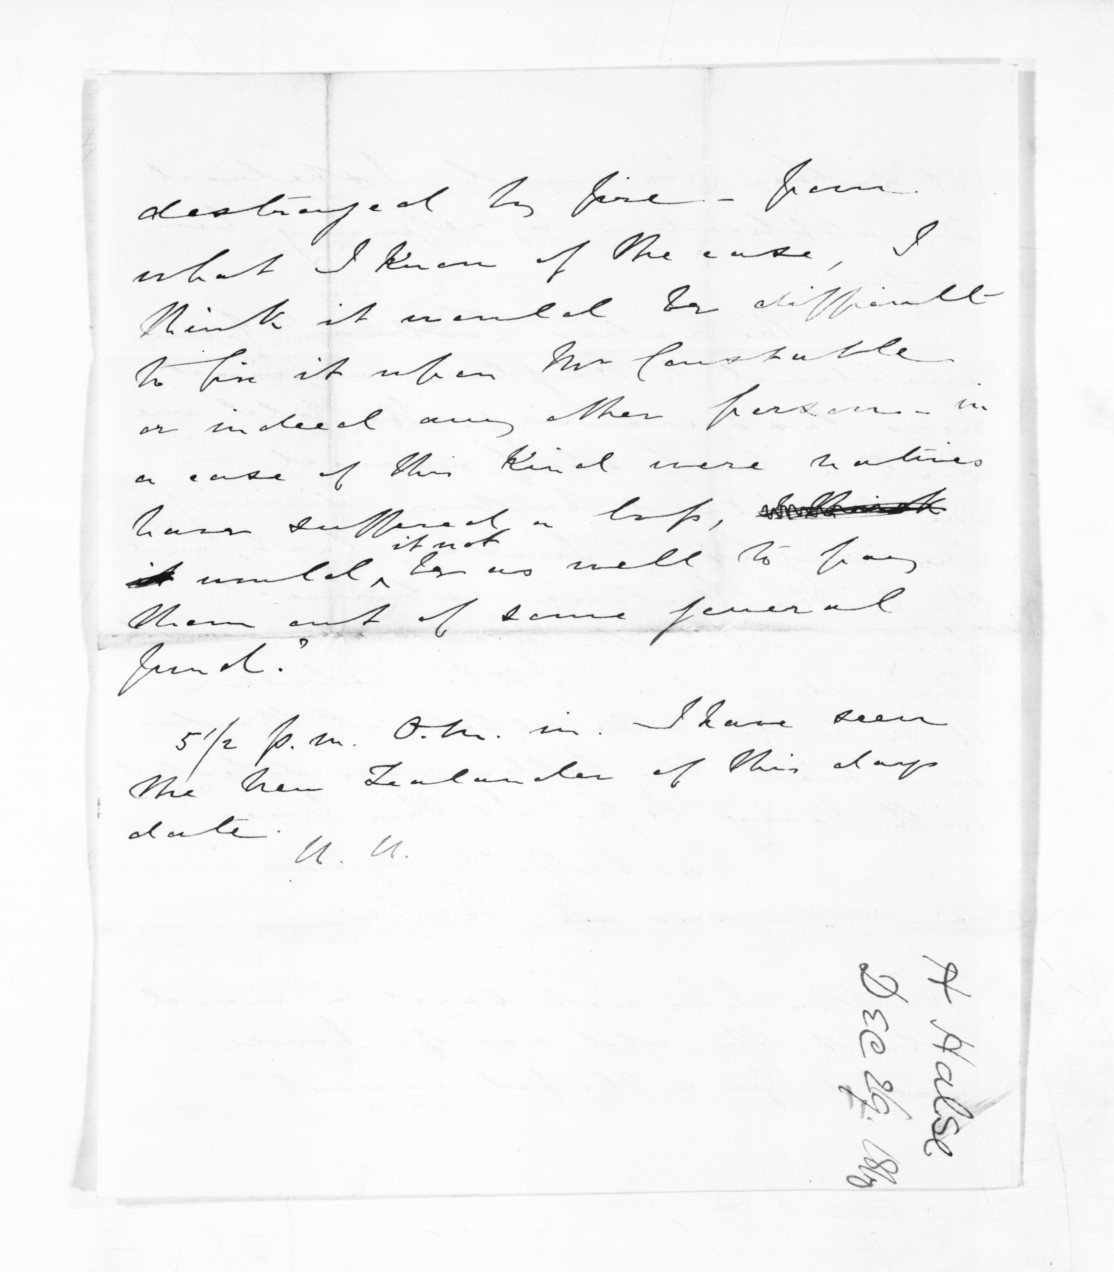 destroyed by fire - from
what I know of the case, I
think it would be difficult
to fix it upon Mr Constable
or indeed any other person - in
a case of this kind were natives
have suffered a loss,
it not
would, be as well to pay
them out of some general
fund."
5 1/2 p.m. O.M. in. I have seen
the New Zealander of this days
date.
H. H.
H Halse
DEC 29. 186